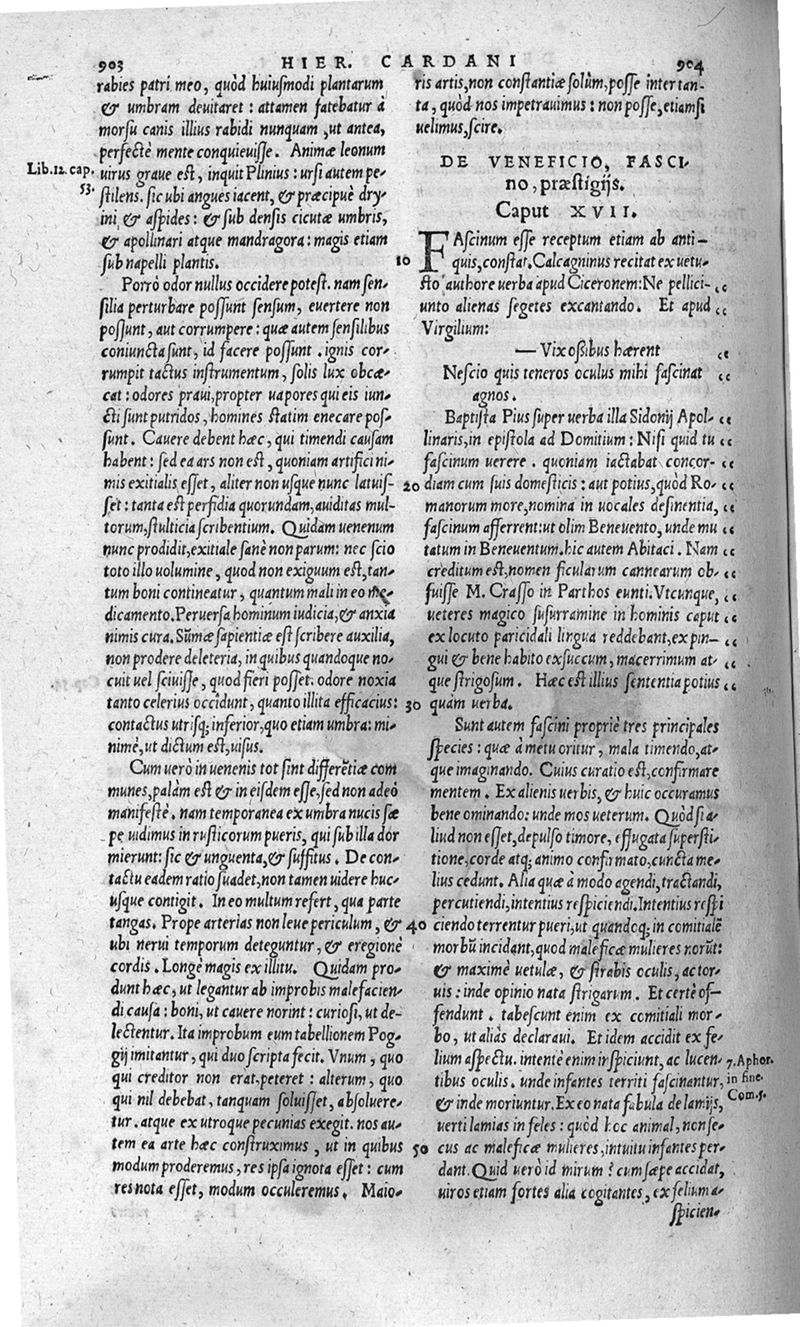 903 HIER. CARDANI 904
rabies patri meo, quòd huiusmodi plantarum
& umbram deuitaret: attamen fatebatur à
morsu canis illius rabidi nunquam, ut antea,
perfectè mente conquieuisse. Animæ leonum
Lib.12. cap. 53.
uirus graue est, inquit Plinius: ursi autem pe-
stilens. sic ubi angues iacent, & præcipuè dry-
ini & aspides: & sub densis cicutæ umbris,
& apollinari atque mandragora: magis etiam
sub napelli plantis.
Porrò odor nullus occidere potest. nam sen-
silia perturbare possunt sensum, euertere non
possunt, aut corrumpere: quæ autem sensilibus
coniuncta sunt, id facere possunt. ignis cor-
rumpit tactus instrumentum, solis lux obcæ-
cat: odores praui, propter uapores qui eis iun-
cti sunt putridos, homines statim enecare pos-
sunt. Cauere debent hæc, qui timendi causam
habent: sed ea ars non est, quoniam artifici ni-
mis exitialis esset, aliter non usque nunc latuis-
set: tanta est perfidia quorundam, auiditas mul-
torum, stulticia scribentium. Quidam uenenum
nunc prodidit, exitiale sanè non parum: nec scio
toto illo uolumine, quod non exiguum est, tan-
tum boni contineatur, quantum mali in eo me-
dicamento. Peruersa hominum iudicia, & anxia
nimis cura. Sũmæ sapientiæ est scribere auxilia,
non prodere deleteria, in quibus quandoque no-
cuit uel sciuisse, quod fieri posset. odore noxia
tanto celerius occidunt, quanto illita efficacius:
contactus utrisq; inferior, quo etiam umbra: mi-
nimè, ut dictum est, uisus.
Cum uerò in uenenis tot sint differẽtiæ com
munes, palàm est & in eisdem esse, sed non adeò
manifestè. nam temporanea ex umbra nucis sæ
pe uidimus in rusticorum pueris, qui sub illa dor
mierunt: sic & unguenta, & suffitus. De con-
tactu eadem ratio suadet, non tamen uidere huc-
usque contigit. In eo multum refert, qua parte
tangas. Prope arterias non leue periculum, &
ubi nerui temporum deteguntur, & eregionè
cordis. Longè magis ex illitu. Quidam pro-
dunt hæc, ut legantur ab improbis malefacien-
di causa: boni, ut cauere norint: curiosi, ut de-
lectentur. Ita improbum eum tabellionem Pog-
gij imitantur, qui duo scripta fecit. Vnum, quo
qui creditor non erat, peteret: alterum, quo
qui nil debebat, tanquam soluisset, absoluere-
tur. atque ex utroque pecunias exegit. nos au-
tem ea arte hæc construximus, ut in quibus
modum proderemus, res ipsa ignota esset: cum
res nota esset, modum occuleremus. Maio-
ris artis, non constantiæ solùm, posse inter tan-
ta, quòd nos impetrauimus: non posse, etiamsi
uelimus, scire.
DE VENEFICIO, FASCI-
no, præstigijs.
Caput XVII.
10
FAscinum esse receptum etiam ab anti-
quis, constat. Calcagninus recitat ex uetu-
sto authore uerba apud Ciceronem: Ne pellici-
unto alienas segetes excantando. Et apud
Virgilium:
— Vix ossibus hærent
Nescio quis teneros oculus mihi fascinat
agnos.
Baptista Pius super uerba illa Sidonij Apol-
linaris, in epistola ad Domitium: Nisi quid tu
fascinum uerere. quoniam iactabat concor-
20
diam cum suis domesticis: aut potius, quòd Ro-
manorum more, nomina in uocales desinentia,
fascinum afferrent: ut olim Beneuento, unde mu
tatum in Beneuentum. hic autem Abitaci. Nam
creditum est, nomen ficularum cannearum ob-
fuisse M. Crasso in Parthos eunti. Vtcunque,
ueteres magico susurramine in hominis caput
ex locuto paricidali lingua reddebant, ex pin-
gui & bene habito exsuccum, macerrimum at-
que strigosum. Hæc est illius sententia potius
30
quàm uerba.
Sunt autem fascini propriè tres principales
species: quæ à metu oritur, mala timendo, at-
que imaginando. Cuius curatio est, confirmare
mentem. Ex alienis uerbis, & huic occuramus
bene ominando: unde mos ueterum. Quòd si a-
liud non esset, depulso timore, effugata supersti-
tione, corde atq; animo confirmato, cuncta me-
lius cedunt. Alia quæ à modo agendi, tractandi,
percutiendi, intentius respiciendi. Intentius respi
40
ciendo terrentur pueri, ut quandoq; in comitialẽ
morbũ incidant, quod maleficæ mulieres norũt:
& maximè uetulæ, & strabis oculis, ac tor-
uis: inde opinio nata strigarum. Et certè of-
fendunt. tabescunt enim ex comitiali mor-
bo, ut aliàs declaraui. Et idem accidit ex fe-
lium aspectu. intentè enim inspiciunt, ac lucen-
7. Aphor. in fine. Com.5.
tibus oculis. unde infantes territi fascinantur,
& inde moriuntur. Ex eo nata fabula de lamijs,
uerti lamias in feles: quòd hoc animal, non se-
50
cus ac maleficæ mulieres, intuitu infantes per-
dant. Quid uerò id mirum? cum sæpe accidat,
uiros etiam fortes alia cogitantes, ex felium a-
spicien-